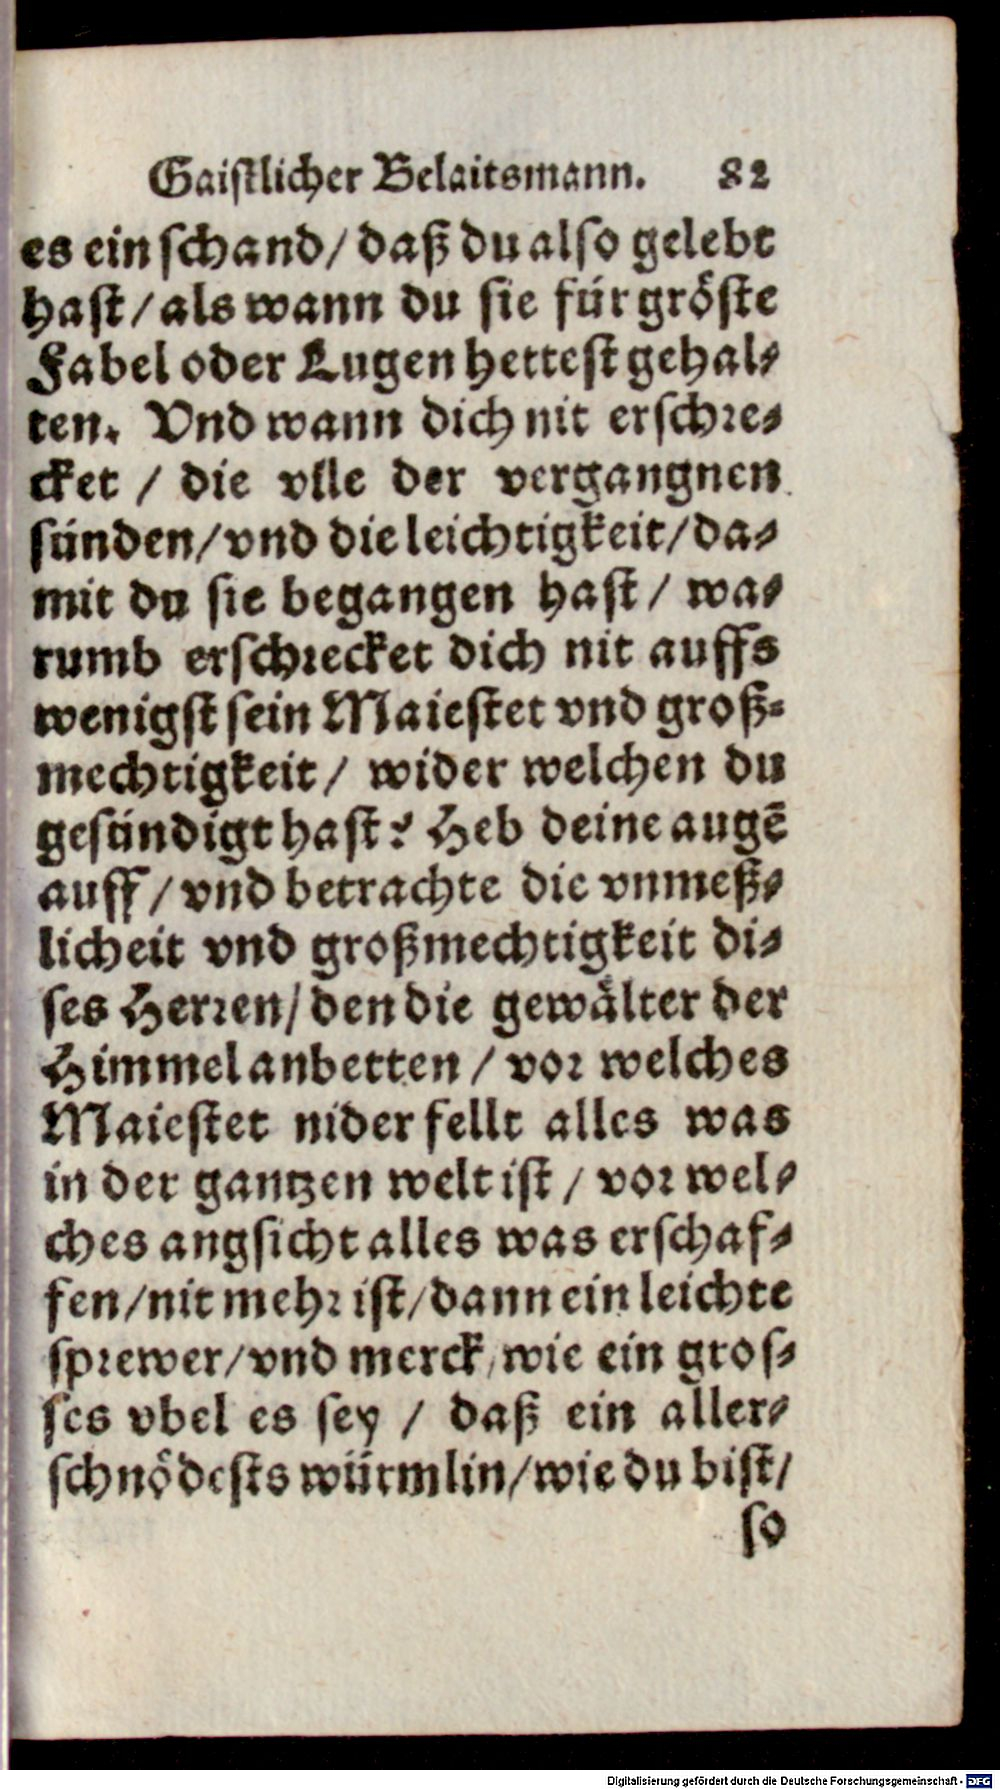 Gaistlicher Belaitsmann. 82
es ein schand / daß du also gelebt
hast / als wann du sie für gröste
Fabel oder Lugen hettest gehal⸗
ten. Vnd wann dich nit erschre⸗
cket / die vile der vergangnen
sünden / vnd die leichtigkeit / da⸗
mit du sie begangen hast / wa⸗
rumb erschrecket dich nit auffs
wenigst sein Maiestet vnd groß⸗
mechtigkeit / wider welchen du
gesündigt hast? Heb deine augē
auff / vnd betrachte die vnmeß⸗
licheit vnd großmechtigkeit di⸗
ses Herren / den die gewälter der
Himmel anbetten / vor welches
Maiestet nider fellt alles was
in der gantzen welt ist / vor wel⸗
ches angsicht alles was erschaf⸗
fen / nit mehr ist / dann ein leichte
sprewer / vnd merck / wie ein gros⸗
ses vbel es sey / daß ein aller⸗
schnödests würmlin / wie du bist /
so
Digitalisierung gefördert durch die Deutsche Forschungsgemeinschaft - DFG